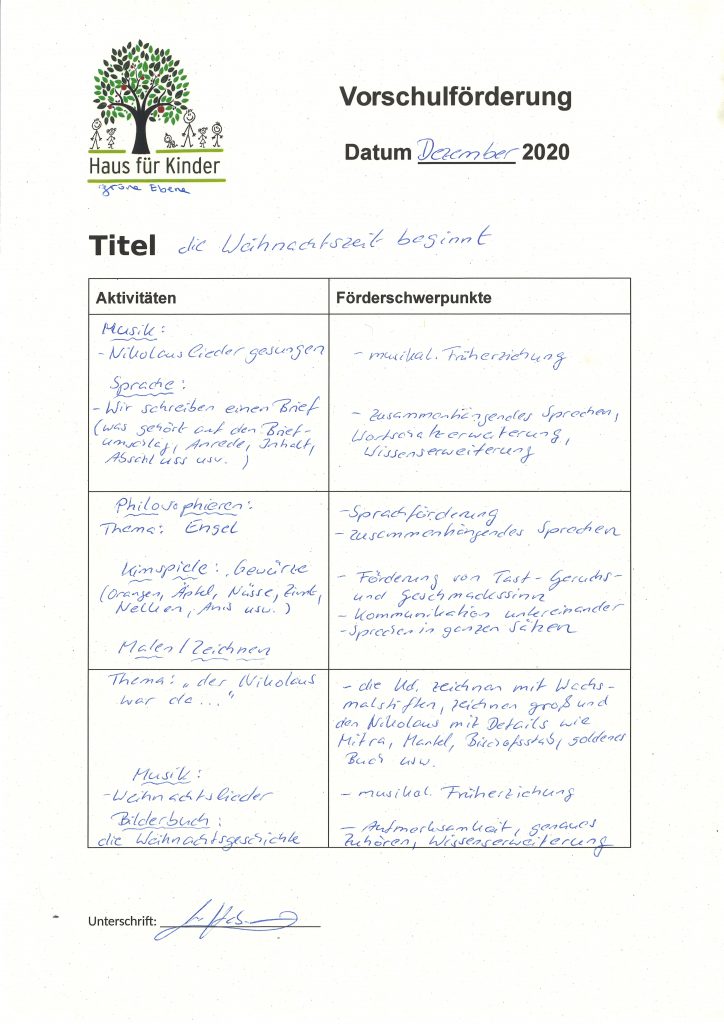 Haus für Kinder
grüne Ebene
Vorschulförderung
Datum Dezember 2020
Titel die Weihnachtszeit beginnt
Aktivitäten
Förderschwerpunkte
Musik:
- Nikolauslieder gesungen
- musikal. Früherziehung
Sprache:
- Wir schreiben einen Brief
(was gehört auf den Brief-
umschlag, Anrede, Inhalt,
Abschluss usw.)
- zusammenhängendes Sprechen,
Wortschatzerweiterung,
Wissenserweiterung
Philosophieren:
Thema: Engel
- Sprachförderung
- zusammenhängendes Sprechen
Kimspiele: Gewürze
(Orangen, Äpfel, Nüsse, Zimt,
Nelken, Anis usw.)
- Förderung von Tast- Geruchs-
und Geschmackssinn
- Kommunikation untereinander
- Sprechen in ganzen Sätzen
Malen / Zeichnen
Thema: "der Nikolaus
war da..."
- die Kd. zeichnen mit Wachs-
malstiften, zeichnen groß und
den Nikolaus mit Details wie
Mitra, Mantel, Bischofsstab, goldenes
Buch usw.
Musik:
- Weihnachtslieder
- musikal. Früherziehung
Bilderbuch:
die Weihnachtsgeschichte
- Aufmerksamkeit, genaues
Zuhören, Wissenserweiterung
Unterschrift: